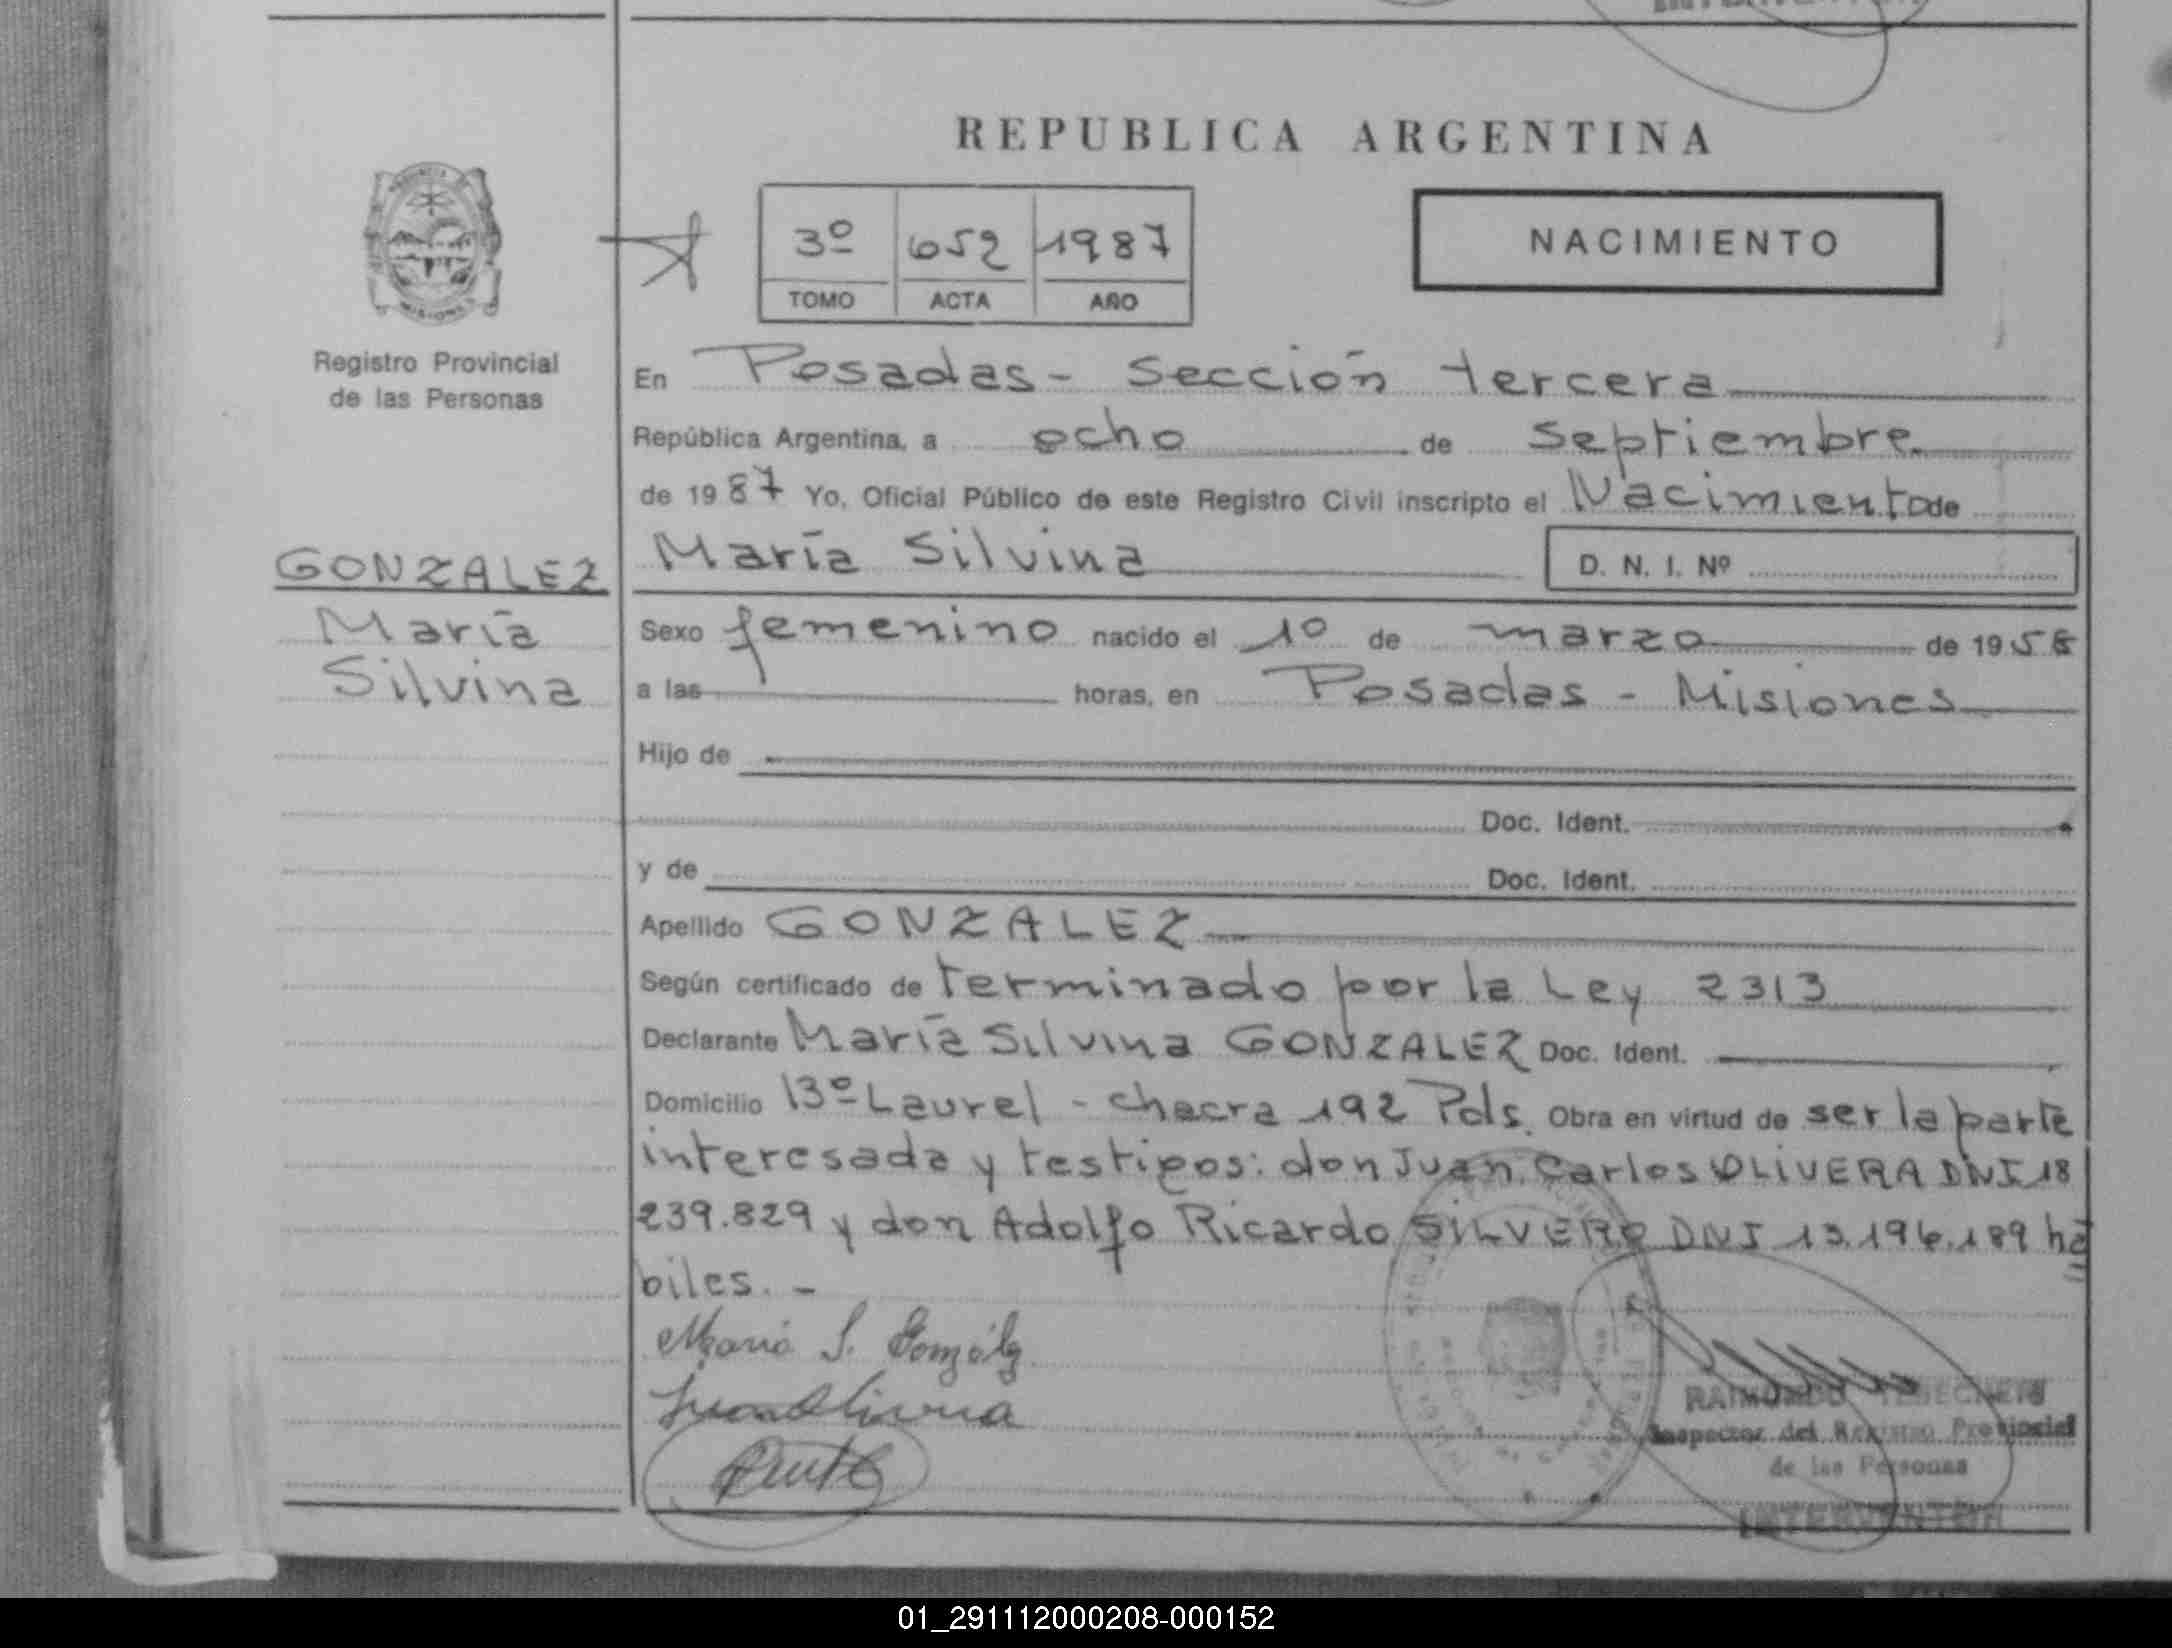 REPUBLICA ARGENTINA
3º 652 1987
TOMO ACTA AÑO
NACIMIENTO
Registro Provincial
de las Personas
GONZALEZ
María
Silvina
En Posadas - Sección tercera
República Argentina, a ocho de septiembre
de 1987 Yo, Oficial Público de este Registro Civil inscripto el Nacimiento de
María Silvina D. N. I. Nº
Sexo femenino nacido el 10 de marzo de 1958
a las horas, en Posadas - Misiones
Hijo de
Doc. Ident.
y de Doc. Ident.
Apellido GONZALEZ
Según certificado de terminado por la Ley 2313
Declarante María Silvina GONZALEZ Doc. Ident.
Domicilio 13º Laurel - chacra 192 Pds. Obra en virtud de ser la parte
interesada y testigos: don Juan Carlos OLIVERA DNI 18
239.829 y don Adolfo Ricardo SILVERO DNI 13.196.189 há
biles. -
María S. Gonzálz
Juan Olivera
RAIMUNDO
Inspector del Registro Provincial
de las Personas
INTERVENTOR
01_291112000208-000152